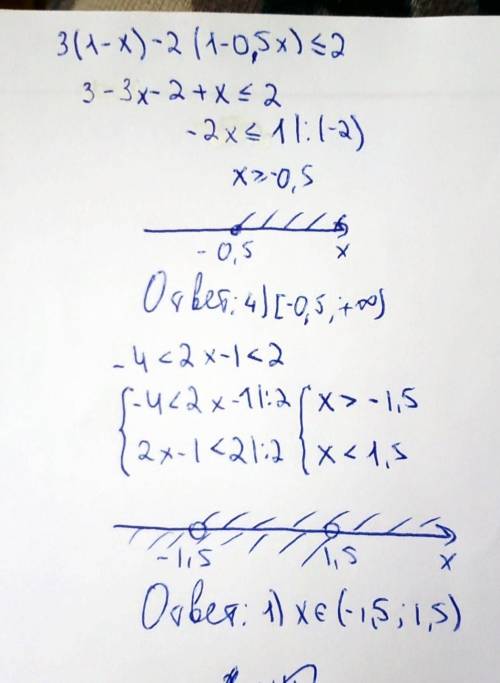 3(1-x)-2(1-0,5x)≤2
3-3x-2+x≤2
-2x≤1|:(-2)
x≥-0,5
-0,5 x
Ответ: 4) [-0,5; +∞)
-4<2x-1<2
{-4<2x-1|:2 {x>-1,5
{2x-1<2|:2 {x<1,5
-1,5 1,5 x
Ответ: 1) x∈(-1,5; 1,5)